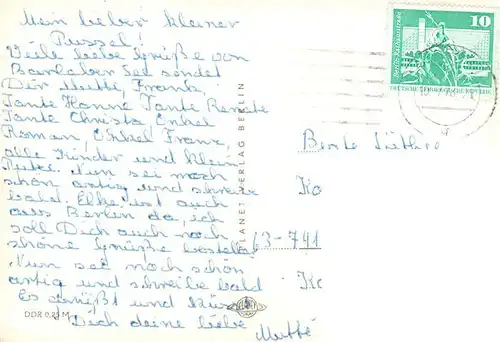 Mein lieber kleiner
Pussel!
Viele liebe Grüße von
Barleber See sendet
Dir Mutti, Frank,
Tante Hanne Tante Renate
Tante Christa Onkel
Roman, Onkel Franz,
alle Kinder und klein
Nun sei noch
schön artig und schreibe
bald. Elke ist auch
aus Berlin da, ich
soll Dich auch noch
schöne Grüße bestellen
Nun sei noch schön
artig und schreibe bald
Es grüßt und küßt
Dich deine liebe
Mutti
DDR 0,25 M
PLANET-VERLAG BERLIN
10
DEUTSCHE DEMOKRATISCHE REPUBLIK
Ko
63-741